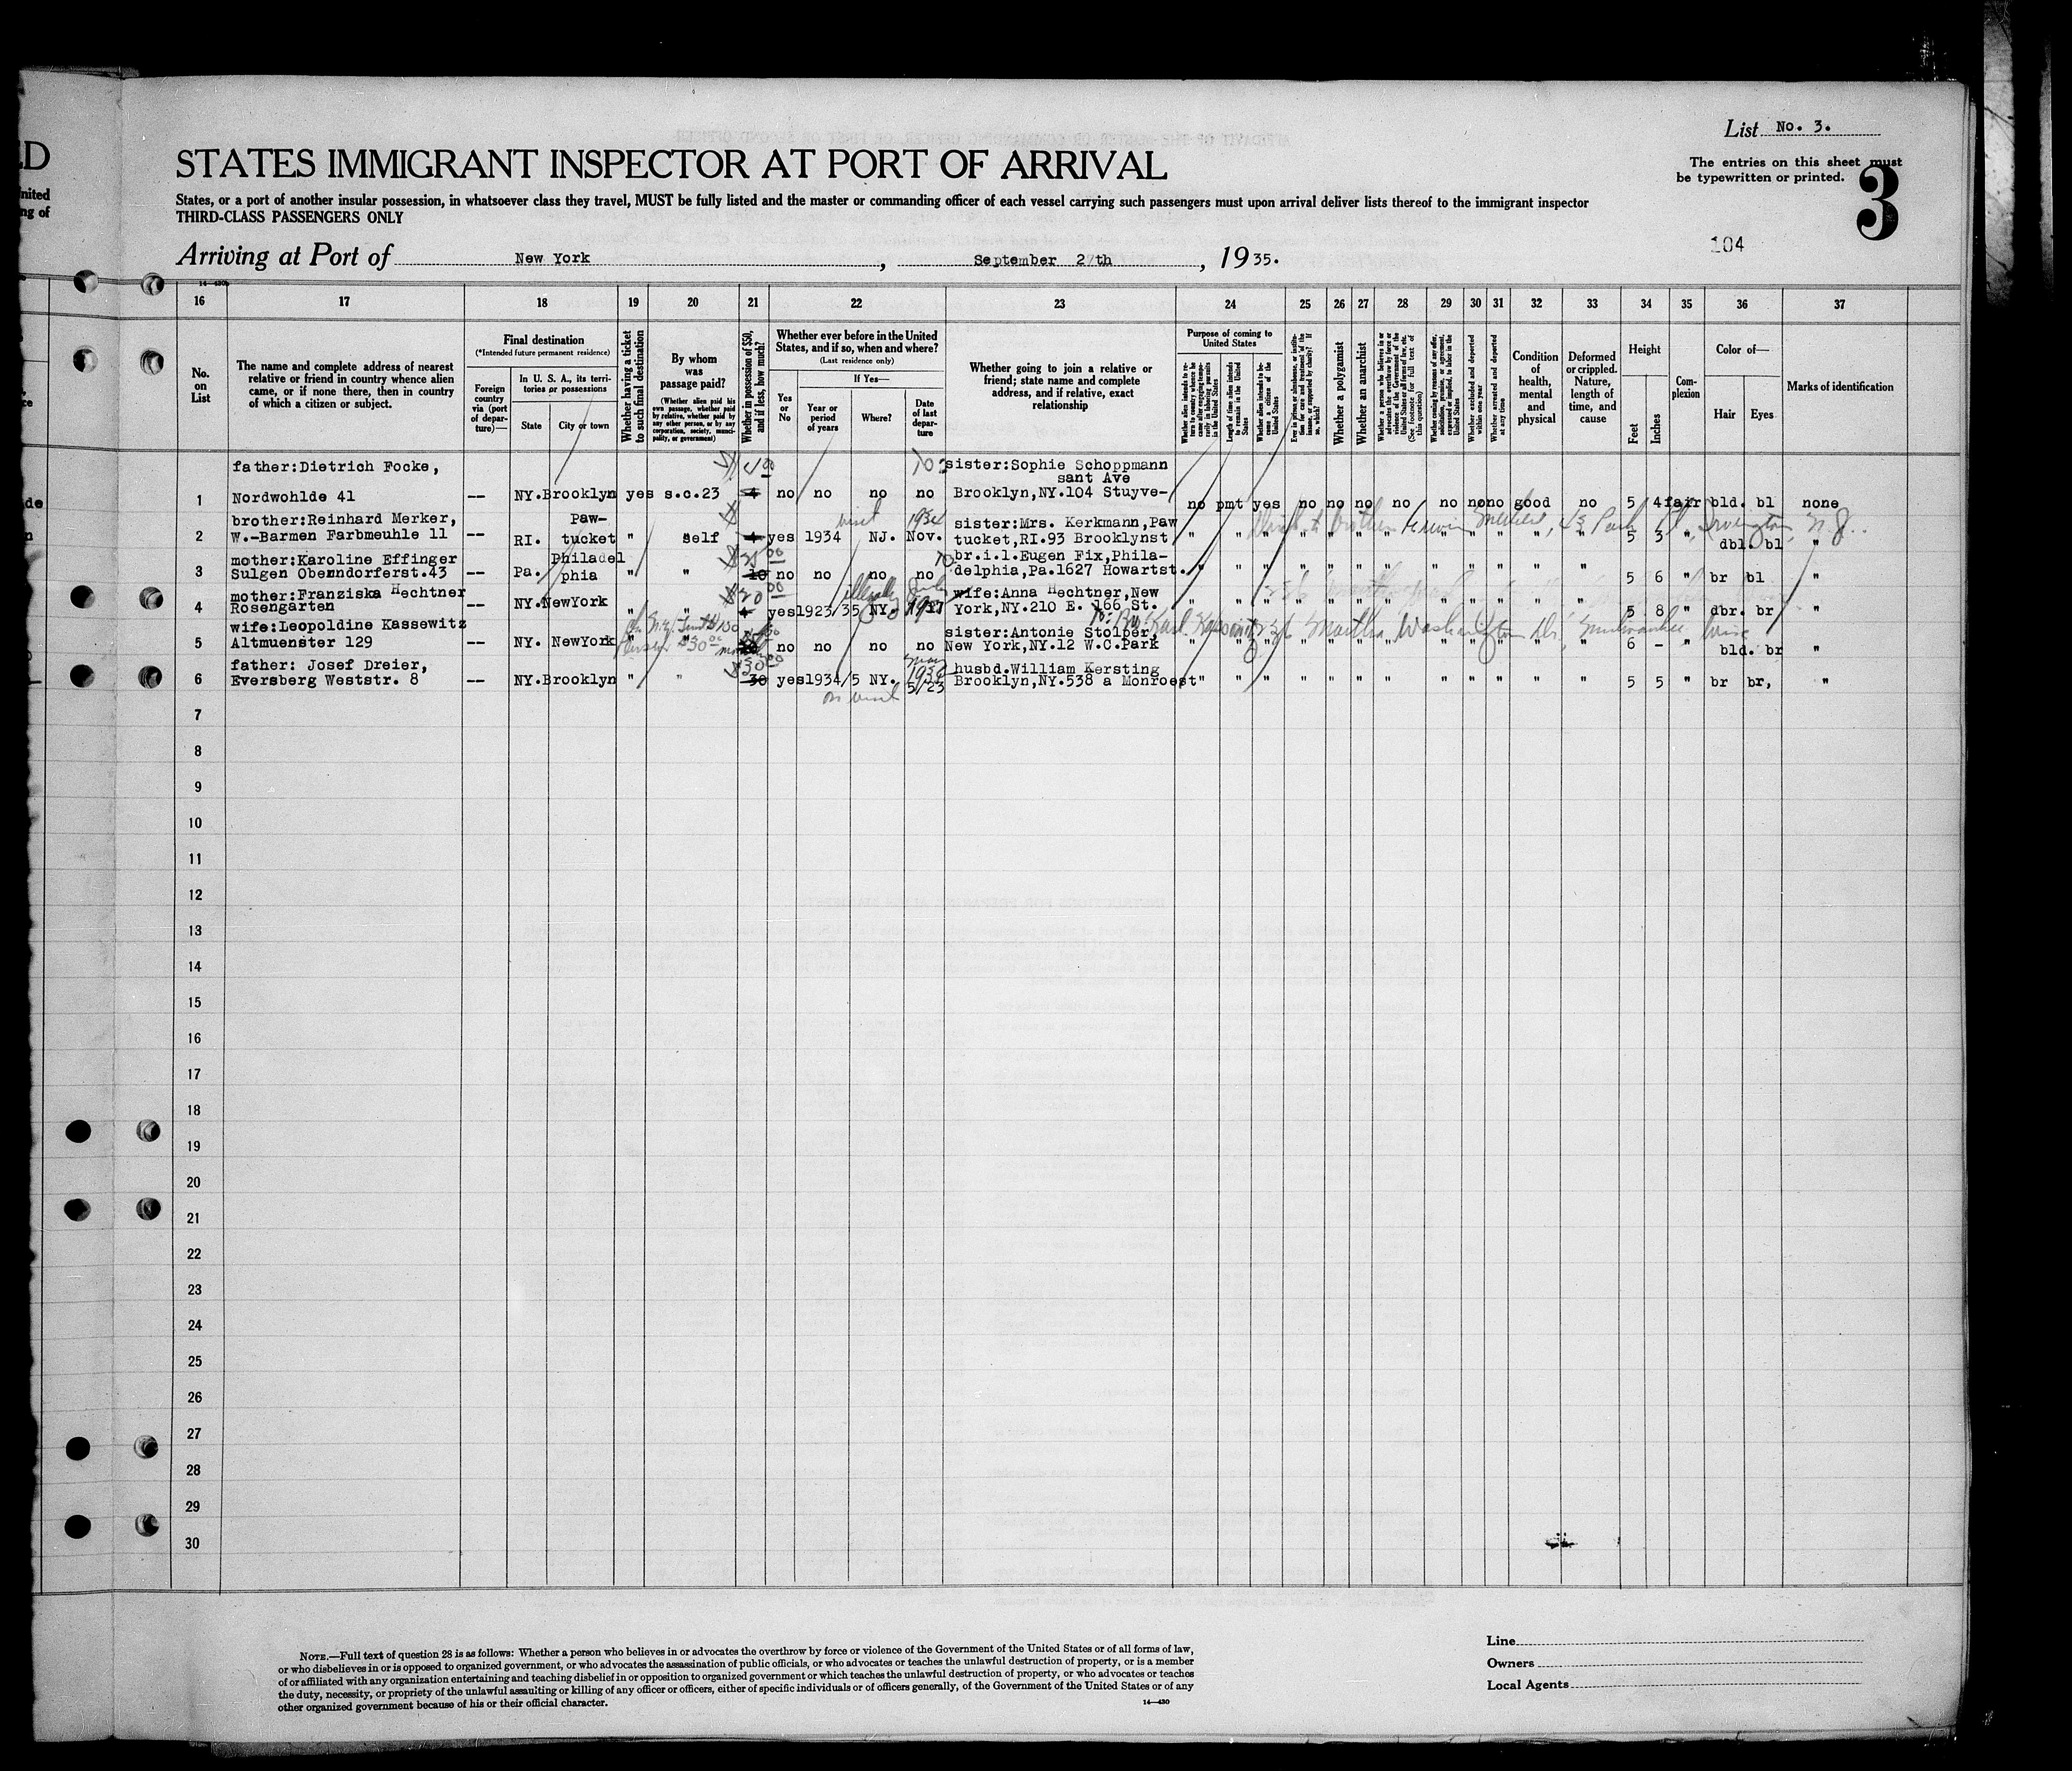 LD
United
ng of
List No. 3.
The entries on this sheet must
be typewritten or printed.
3
104
STATES IMMIGRANT INSPECTOR AT PORT OF ARRIVAL
States, or a port of another insular possession, in whatsoever class they travel, MUST be fully listed and the master or commanding officer of each vessel carrying such passengers must upon arrival deliver lists thereof to the immigrant inspector
THIRD-CLASS PASSENGERS ONLY
Arriving at Port of New York, September 27th, 1935.
16 17 18 19 20 21 22 23 24 25 26 27 28 29 30 31 32 33 34 35 36 37
No. on List
The name and complete address of nearest
relative or friend in country whence alien
came, or if none there, then in country
of which a citizen or subject.
Final destination
(*Intended future permanent residence)
Foreign country via (port of departure)—
In U. S. A., its territories or possessions
State
City or town
Whether having a ticket to such final destination
By whom was passage paid?
(Whether alien paid his own passage, whether paid by relative, whether paid by any other person, or by any corporation, society, municipality, or government)
Whether in possession of $50, and if less, how much?
Whether ever before in the United
States, and if so, when and where?
(Last residence only)
Yes or No
If Yes—
Year or period of years
Where?
Date of last departure
Whether going to join a relative or
friend; state name and complete
address, and if relative, exact
relationship
Purpose of coming to United States
Whether alien intends to return to country whence he came after engaging temporarily in laboring pursuits in the United States
Length of time alien intends to remain in the United States
Whether alien intends to become a citizen of the United States
Whether a polygamist
Whether an anarchist
Condition of health, mental and physical
Deformed or crippled. Nature, length of time, and cause
Height
Feet
Inches
Complexion
Color of—
Hair
Eyes
Marks of identification
father:Dietrich Focke, sister:Sophie Schoppmann
sant Ave
1 Nordwohlde 41 -- NY. Brooklyn yes s.c.23 4 no no no no Brooklyn,NY.104 Stuyve- no pmt yes no no no no no no no good no 5 4 fair bld. bl none
brother:Reinhard Merker, Paw- visit 1934 sister:Mrs. Kerkmann,Paw
2 W.-Barmen Farbmeuhle 11 -- RI. tucket " self 4 yes 1934 NJ. Nov. tucket,RI.93 Brooklynst. " " " " " " " " " " " " 5 3 " dbl. bl "
mother:Karoline Effinger Philadel br.i.l.Eugen Fix,Phila-
3 Sulgen Oberndorferst.43 -- Pa. phia " " 10 no no no no delphia,Pa.1627 Howartst. " " " " " " " " " " " " 5 6 " br bl "
mother:Franziska Hechtner wife:Anna Hechtner,New
4 Rosengarten NY. NewYork " " 4 yes 1923/35 NY. York,NY.210 E. 166 St. " " " " " " " " " " " " 5 8 " dbr. br "
wife:Leopoldine Kassewitz sister:Antonie Stolper,
5 Altmuenster 129 NY. NewYork " " no no no no New York,NY.12 W.C.Park " " " " " " " " " " " " 6 - " bld. br "
father: Josef Dreier, husbd.William Kersting
6 Eversberg Weststr. 8 -- NY. Brooklyn " " 30 yes 1934/5 NY. 5/23 Brooklyn,NY.538 a Monroest " " " " " " " " " " " " 5 5 " br br, "
on visit
7
8
9
10
11
12
13
14
15
16
17
18
19
20
21
22
23
24
25
26
27
28
29
30
NOTE.—Full text of question 28 is as follows: Whether a person who believes in or advocates the overthrow by force or violence of the Government of the United States or of all forms of law,
or who disbelieves in or is opposed to organized government, or who advocates the assassination of public officials, or who advocates or teaches the unlawful destruction of property, or is a member
of or affiliated with any organization entertaining and teaching disbelief in or opposition to organized government or which teaches the unlawful destruction of property, or who advocates or teaches
the duty, necessity, or propriety of the unlawful assaulting or killing of any officer or officers, either of specific individuals or of officers generally, of the Government of the United States or of any
other organized government because of his or their official character.
14—430
Line
Owners
Local Agents